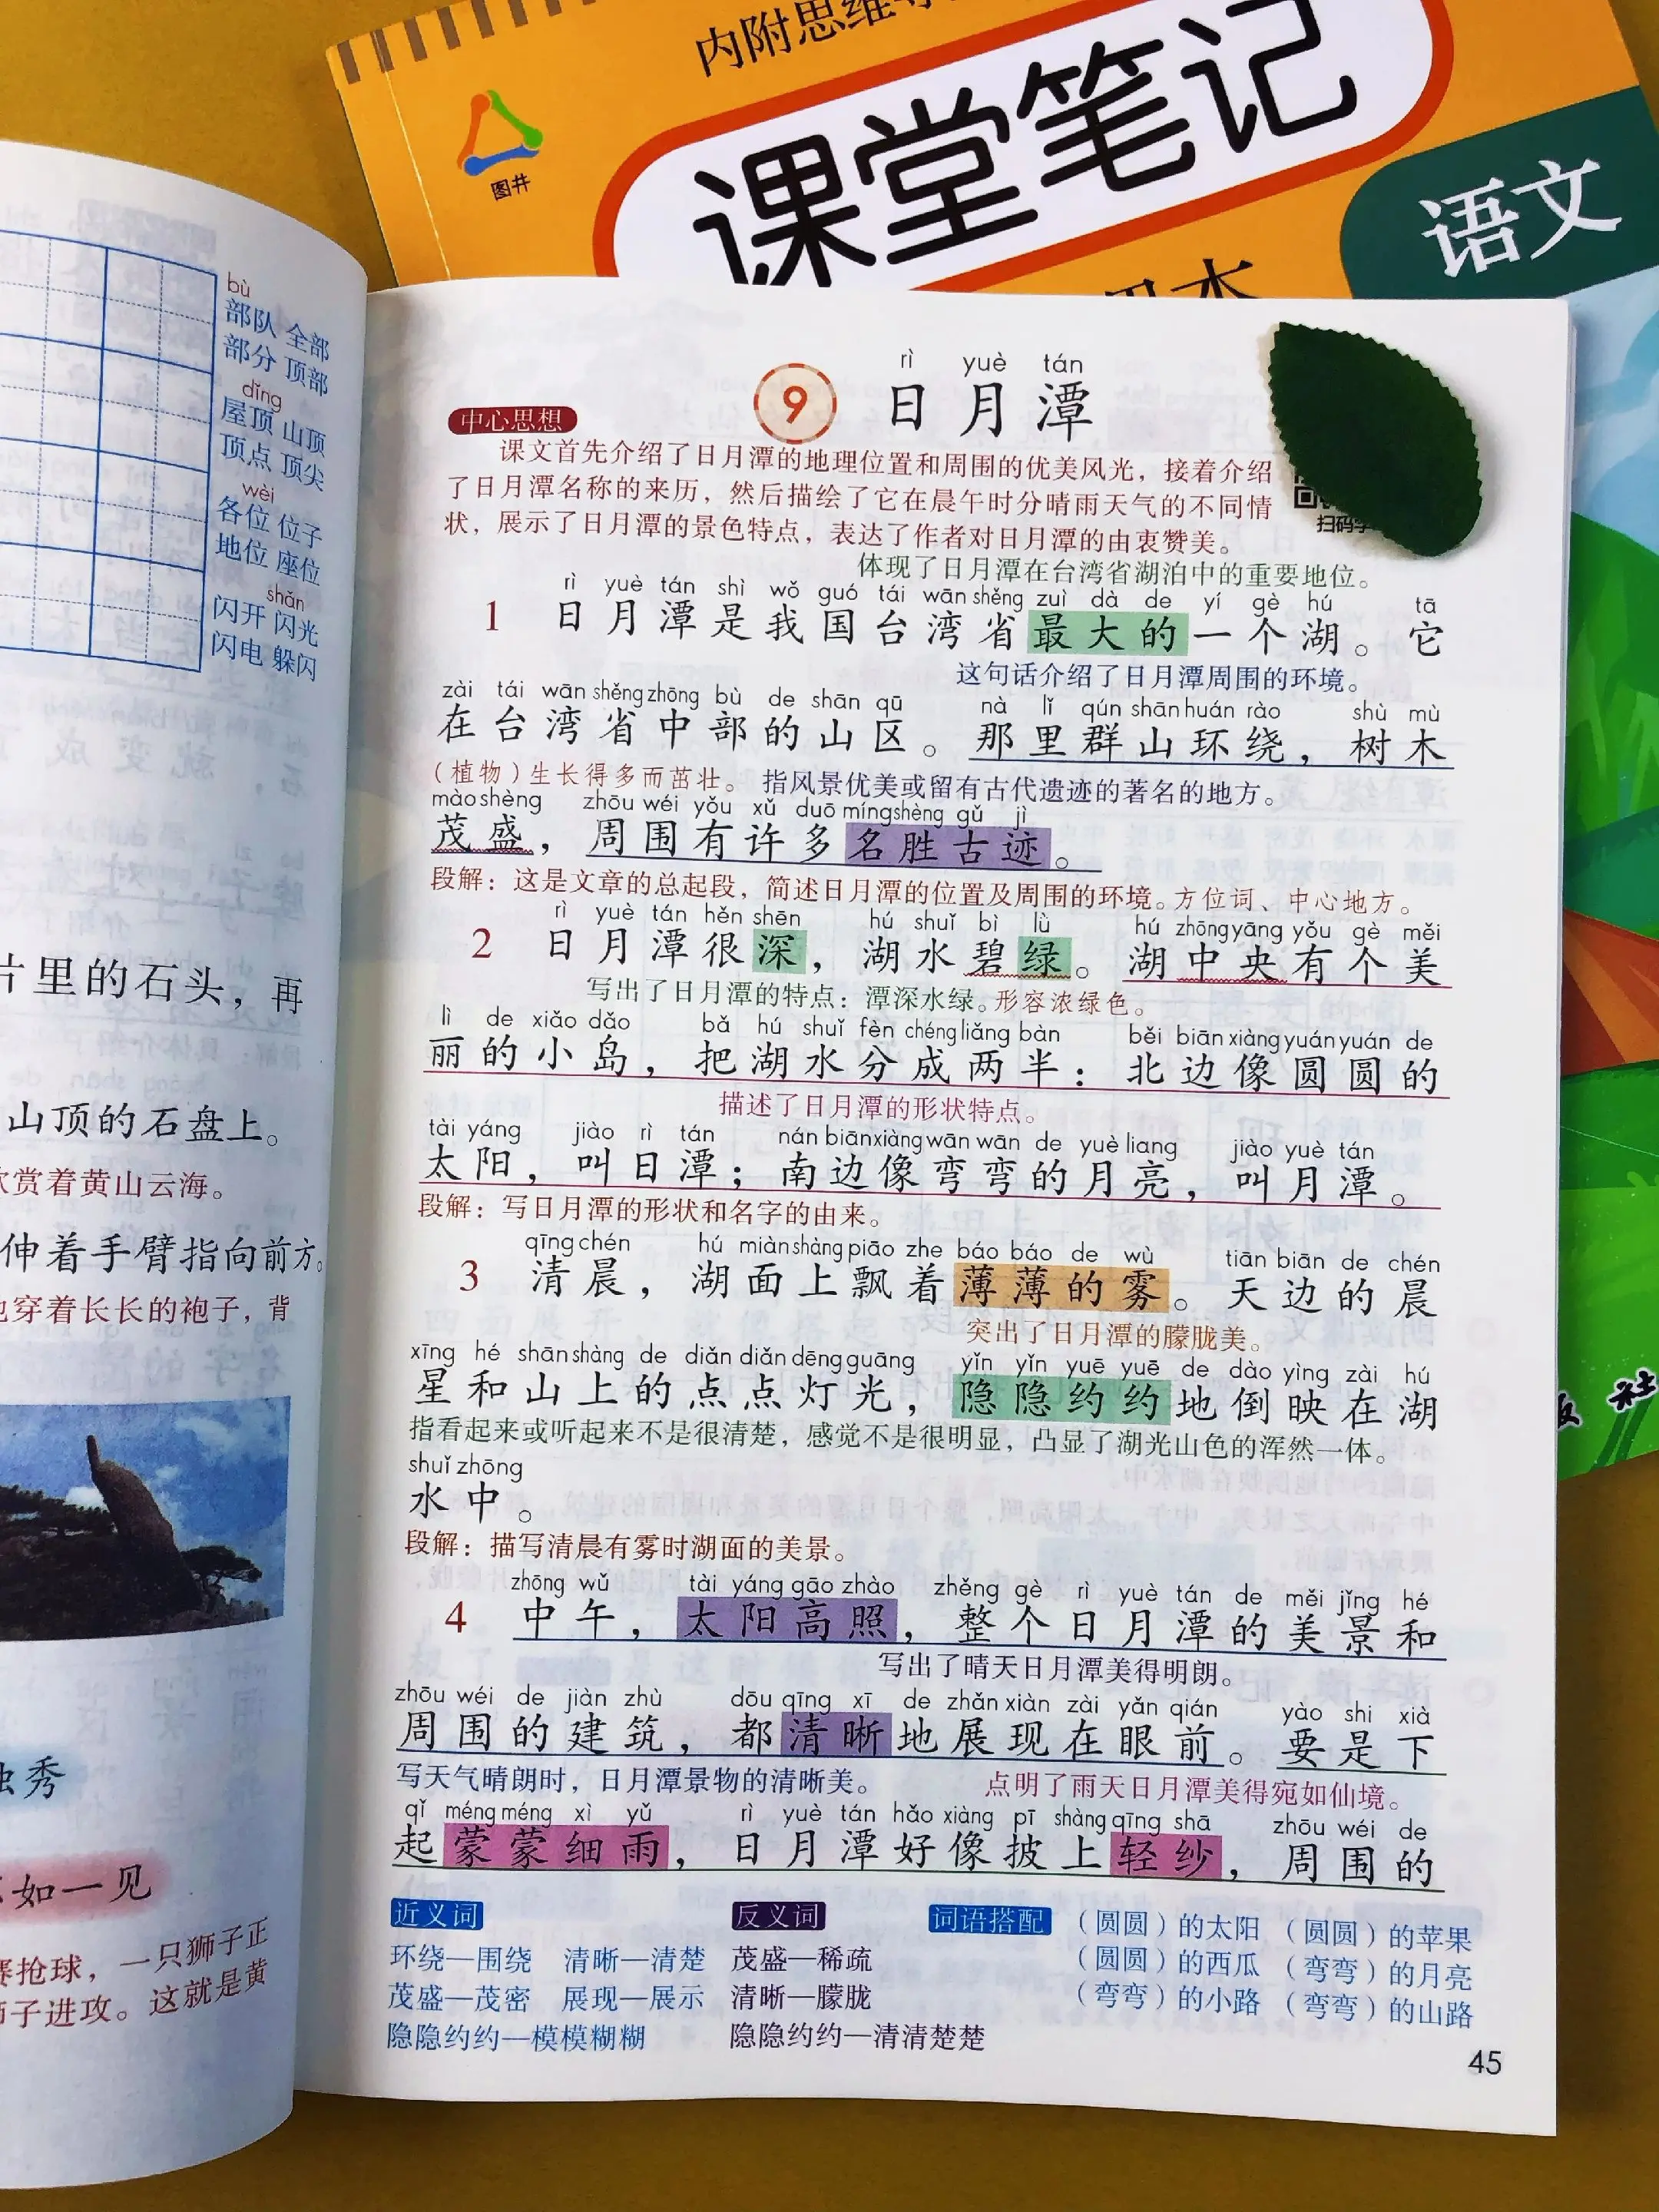 内附思维导
课堂笔记
图井
语文
bù
部队 全部
部分 顶部
dǐng
屋顶 山顶
顶点 顶尖
wèi
各位 位子
地位 座位
shǎn
闪开 闪光
闪电 躲闪
片里的石头，再
山顶的石盘上。
欣赏着黄山云海。
伸着手臂指向前方。
他穿着长长的袍子，背
独秀
如一见
赛抢球，一只狮子正
狮子进攻。这就是黄
rì yuè tán
9 日月潭
中心思想
课文首先介绍了日月潭的地理位置和周围的优美风光，接着介绍
了日月潭名称的来历，然后描绘了它在晨午时分晴雨天气的不同情
状，展示了日月潭的景色特点，表达了作者对日月潭的由衷赞美。
扫码学
体现了日月潭在台湾省湖泊中的重要地位。
rì yuè tán shì wǒ guó tái wān shěng zuì dà de yí gè hú tā
1 日月潭是我国台湾省最大的一个湖。它
这句话介绍了日月潭周围的环境。
zài tái wān shěng zhōng bù de shān qū nà lǐ qún shān huán rào shù mù
在台湾省中部的山区。那里群山环绕，树木
（植物）生长得多而茁壮。 指风景优美或留有古代遗迹的著名的地方。
mào shèng zhōu wéi yǒu xǔ duō míng shèng gǔ jì
茂盛，周围有许多名胜古迹。
段解：这是文章的总起段，简述日月潭的位置及周围的环境。方位词、中心地方。
rì yuè tán hěn shēn hú shuǐ bì lǜ hú zhōng yāng yǒu gè měi
2 日月潭很深，湖水碧绿。湖中央有个美
写出了日月潭的特点：潭深水绿。形容浓绿色。
lì de xiǎo dǎo bǎ hú shuǐ fèn chéng liǎng bàn běi biān xiàng yuán yuán de
丽的小岛，把湖水分成两半：北边像圆圆的
描述了日月潭的形状特点。
tài yáng jiào rì tán nán biān xiàng wān wān de yuè liang jiào yuè tán
太阳，叫日潭；南边像弯弯的月亮，叫月潭。
段解：写日月潭的形状和名字的由来。
qīng chén hú miàn shàng piāo zhe báo báo de wù tiān biān de chén
3 清晨，湖面上飘着薄薄的雾。天边的晨
突出了日月潭的朦胧美。
xīng hé shān shàng de diǎn diǎn dēng guāng yǐn yǐn yuē yuē de dào yìng zài hú
星和山上的点点灯光，隐隐约约地倒映在湖
指看起来或听起来不是很清楚，感觉不是很明显，凸显了湖光山色的浑然一体。
shuǐ zhōng
水中。
段解：描写清晨有雾时湖面的美景。
zhōng wǔ tài yáng gāo zhào zhěng gè rì yuè tán de měi jǐng hé
4 中午，太阳高照，整个日月潭的美景和
写出了晴天日月潭美得明朗。
zhōu wéi de jiàn zhù dōu qīng xī de zhǎn xiàn zài yǎn qián yào shi xià
周围的建筑，都清晰地展现在眼前。要是下
写天气晴朗时，日月潭景物的清晰美。 点明了雨天日月潭美得宛如仙境。
qǐ méng méng xì yǔ rì yuè tán hǎo xiàng pī shàng qīng shā zhōu wéi de
起蒙蒙细雨，日月潭好像披上轻纱，周围的
近义词
环绕—围绕 清晰—清楚
茂盛—茂密 展现—展示
隐隐约约—模模糊糊
反义词
茂盛—稀疏
清晰—朦胧
隐隐约约—清清楚楚
词语搭配
（圆圆）的太阳 （圆圆）的苹果
（圆圆）的西瓜 （弯弯）的月亮
（弯弯）的小路 （弯弯）的山路
45
社